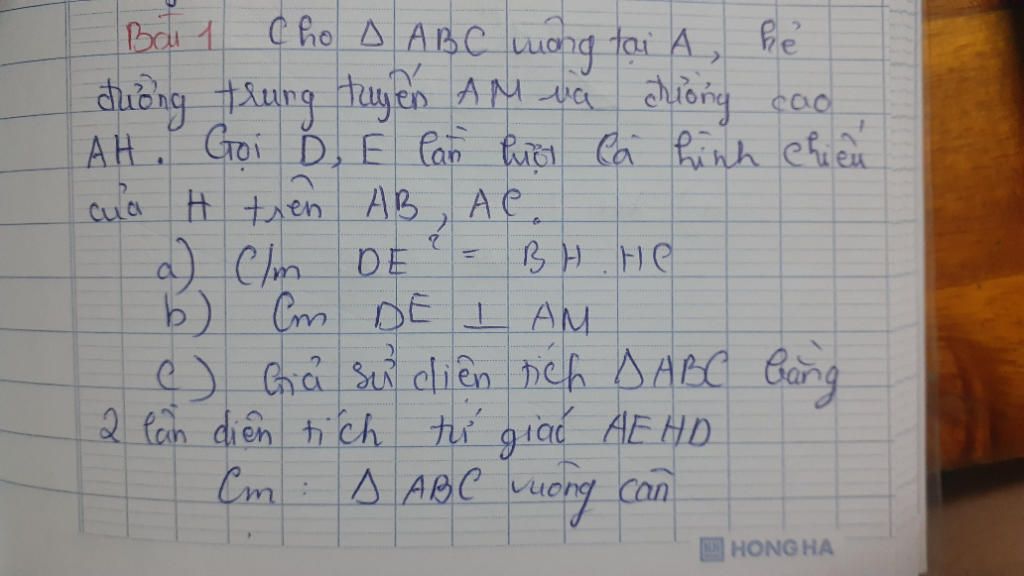 Bài 1 Cho Δ ABC vuông tại A, kẻ
đường trung tuyến AM và đường cao
AH. Gọi D, E lần lượt là hình chiếu
của H trên AB, AC.
a) C/m DE² = BH.HC
b) Cm DE ⊥ AM
c) Giả sử diện tích ΔABC bằng
2 lần diện tích tứ giác AEHD
Cm : Δ ABC vuông cân
HONG HA